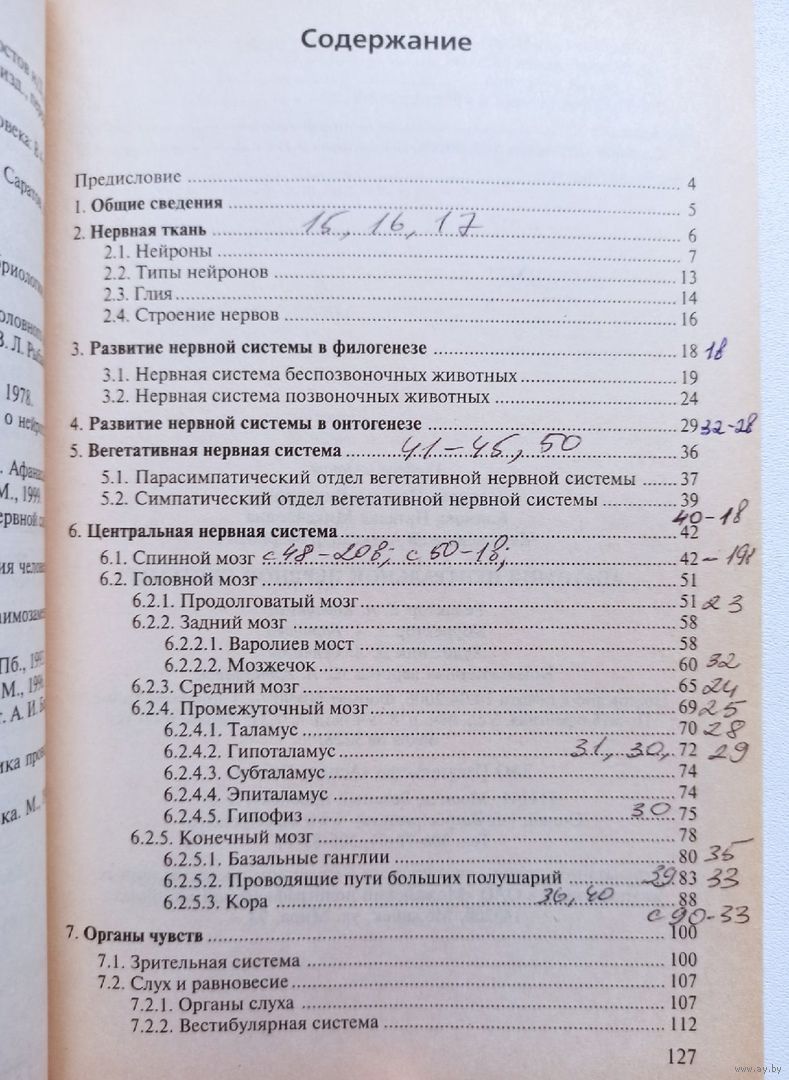 Содержание
Предисловие 4
1. Общие сведения 5
2. Нервная ткань 15, 16, 17 6
2.1. Нейроны 7
2.2. Типы нейронов 13
2.3. Глия 14
2.4. Строение нервов 16
3. Развитие нервной системы в филогенезе 18 18
3.1. Нервная система беспозвоночных животных 19
3.2. Нервная система позвоночных животных 24
4. Развитие нервной системы в онтогенезе 29 32-28
5. Вегетативная нервная система 41-45, 50 36
5.1. Парасимпатический отдел вегетативной нервной системы 37
5.2. Симпатический отдел вегетативной нервной системы 39
40-18
6. Центральная нервная система 42
6.1. Спинной мозг с 48-20в; с 50-1в; 42
6.2. Головной мозг 51
6.2.1. Продолговатый мозг 51 23
6.2.2. Задний мозг 58
6.2.2.1. Варолиев мост 58
6.2.2.2. Мозжечок 60 32
6.2.3. Средний мозг 65 24
6.2.4. Промежуточный мозг 69 25
6.2.4.1. Таламус 70 28
6.2.4.2. Гипоталамус 31, 30, 72 29
6.2.4.3. Субталамус 74
6.2.4.4. Эпиталамус 74
6.2.4.5. Гипофиз 30 75
6.2.5. Конечный мозг 78
6.2.5.1. Базальные ганглии 80 35
6.2.5.2. Проводящие пути больших полушарий 39 83 33
6.2.5.3. Кора 36, 40 88
с 90-33
7. Органы чувств 100
7.1. Зрительная система 100
7.2. Слух и равновесие 107
7.2.1. Органы слуха 107
7.2.2. Вестибулярная система 112
127
www.ay.by